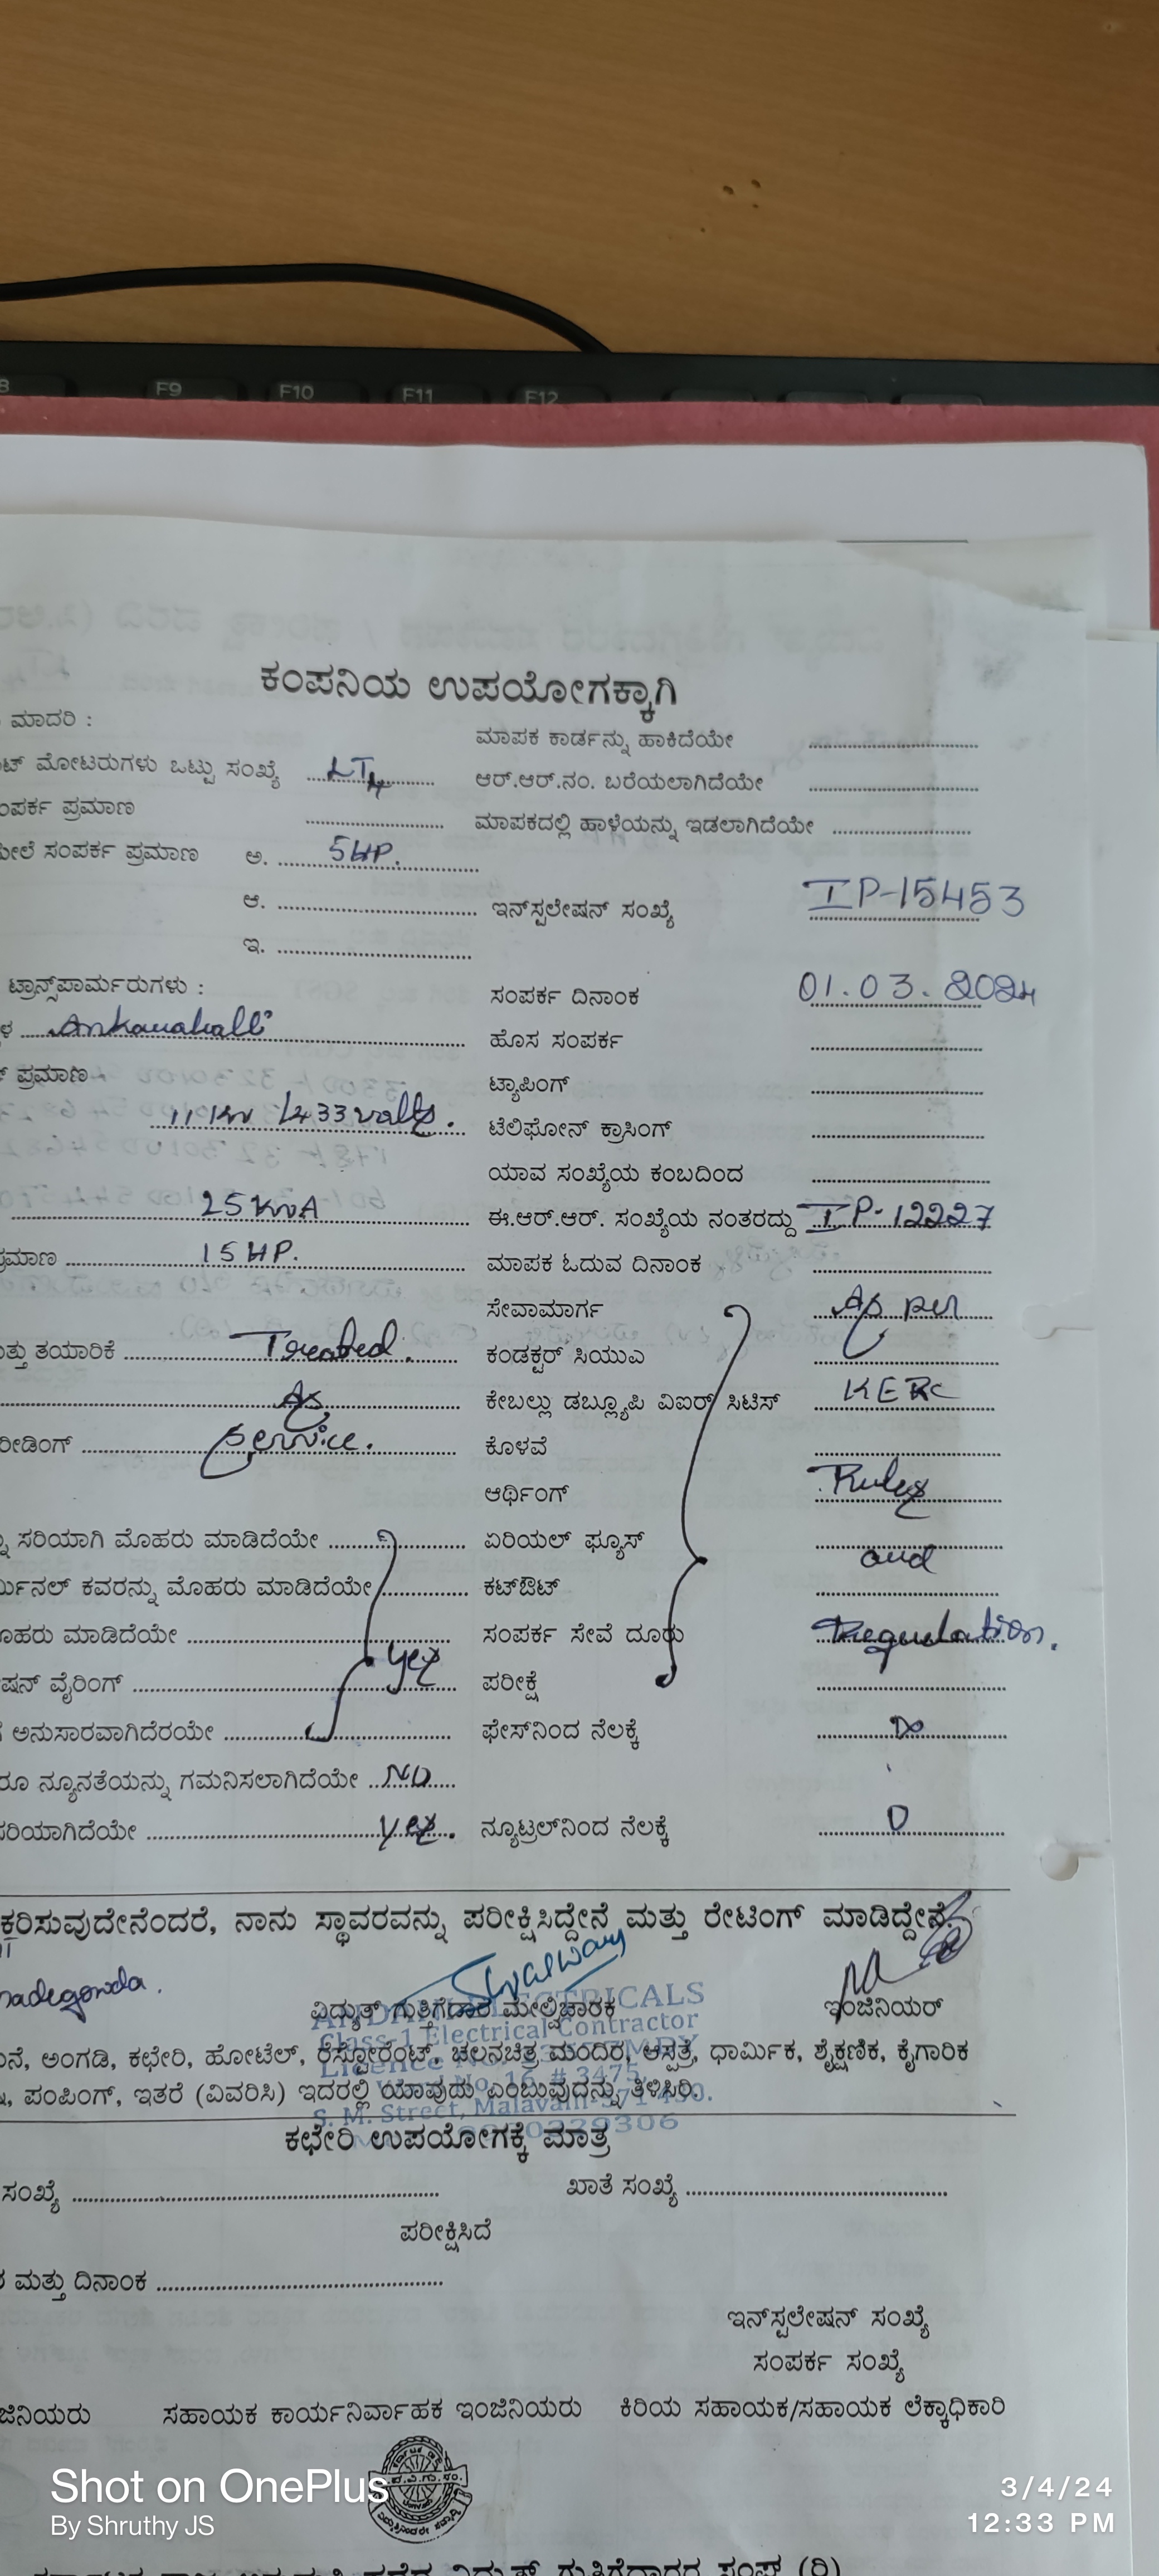 F9 F10 F11 F12
ಕಂಪನಿಯ ಉಪಯೋಗಕ್ಕಾಗಿ
ಮಾದರಿ :
ಮಾಪಕ ಕಾರ್ಡನ್ನು ಹಾಕಿದೆಯೇ
ಮೋಟರುಗಳು ಒಟ್ಟು ಸಂಖ್ಯೆ LT4
ಆರ್.ಆರ್.ನಂ. ಬರೆಯಲಾಗಿದೆಯೇ
ಪ್ರಮಾಣ
ಮಾಪಕದಲ್ಲಿ ಹಾಳೆಯನ್ನು ಇಡಲಾಗಿದೆಯೇ
ಸಂಪರ್ಕ ಪ್ರಮಾಣ ಅ. 5HP.
ಆ.
ಇನ್‌ಸ್ಟಲೇಷನ್ ಸಂಖ್ಯೆ IP-15453
ಇ.
ಟ್ರಾನ್ಸ್‌ಪಾರ್ಮರುಗಳು :
ಸಂಪರ್ಕ ದಿನಾಂಕ 01.03.2024
ಹೊಸ ಸಂಪರ್ಕ
ಪ್ರಮಾಣ
ಟ್ಯಾಪಿಂಗ್
ಟೆಲಿಫೋನ್ ಕ್ರಾಸಿಂಗ್
ಯಾವ ಸಂಖ್ಯೆಯ ಕಂಬದಿಂದ
25 KVA ಈ.ಆರ್.ಆರ್. ಸಂಖ್ಯೆಯ ನಂತರದ್ದು IP-12227
15 HP. ಮಾಪಕ ಓದುವ ದಿನಾಂಕ
ಸೇವಾಮಾರ್ಗ As per
ತಯಾರಿಕೆ Treated. ಕಂಡಕ್ಟರ್ ಸಿಯುಎ
As ಕೇಬಲ್ಲು ಡಬ್ಲ್ಯೂಪಿ ವಿಐರ್ ಸಿಟಿಸ್ KERC
service. ಕೊಳವೆ
ಆರ್ಥಿಂಗ್ Rules
ಸರಿಯಾಗಿ ಮೊಹರು ಮಾಡಿದೆಯೇ ಏರಿಯಲ್ ಫ್ಯೂಸ್ and
ಕವರನ್ನು ಮೊಹರು ಮಾಡಿದೆಯೇ ಕಟ್‌ಔಟ್
ಮಾಡಿದೆಯೇ ಸಂಪರ್ಕ ಸೇವೆ ದೂರು Regulation.
ವೈರಿಂಗ್ yes ಪರೀಕ್ಷೆ
ಅನುಸಾರವಾಗಿದೆರಯೇ ಫೇಸ್‌ನಿಂದ ನೆಲಕ್ಕೆ
ನ್ಯೂನತೆಯನ್ನು ಗಮನಿಸಲಾಗಿದೆಯೇ NO
yes. ನ್ಯೂಟ್ರಲ್‌ನಿಂದ ನೆಲಕ್ಕೆ 0
ನಾನು ಸ್ಥಾವರವನ್ನು ಪರೀಕ್ಷಿಸಿದ್ದೇನೆ ಮತ್ತು ರೇಟಿಂಗ್ ಮಾಡಿದ್ದೇನೆ.
ವಿದ್ಯುತ್ ಗುತ್ತಿಗೆದಾರ ಮೇಲ್ವಿಚಾರಕ
ಇಂಜಿನಿಯರ್
Class-1 Electrical Contractor
ಅಂಗಡಿ, ಕಛೇರಿ, ಹೋಟೆಲ್, ರೆಸ್ಟೋರೆಂಟ್, ಚಲನಚಿತ್ರ ಮಂದಿರ, ಆಸ್ಪತ್ರೆ, ಧಾರ್ಮಿಕ, ಶೈಕ್ಷಣಿಕ, ಕೈಗಾರಿಕ
ಪಂಪಿಂಗ್, ಇತರೆ (ವಿವರಿಸಿ) ಇದರಲ್ಲಿ ಯಾವುದು ಎಂಬುವುದನ್ನು ತಿಳಿಸಿರಿ.
S. M. Street, Malavalli
ಕಛೇರಿ ಉಪಯೋಗಕ್ಕೆ ಮಾತ್ರ
ಸಂಖ್ಯೆ ಖಾತೆ ಸಂಖ್ಯೆ
ಪರೀಕ್ಷಿಸಿದೆ
ಮತ್ತು ದಿನಾಂಕ
ಇನ್‌ಸ್ಟಲೇಷನ್ ಸಂಖ್ಯೆ
ಸಂಪರ್ಕ ಸಂಖ್ಯೆ
ಸಹಾಯಕ ಕಾರ್ಯನಿರ್ವಾಹಕ ಇಂಜಿನಿಯರು ಕಿರಿಯ ಸಹಾಯಕ/ಸಹಾಯಕ ಲೆಕ್ಕಾಧಿಕಾರಿ
Shot on OnePlus
By Shruthy JS
3/4/24
12:33 PM